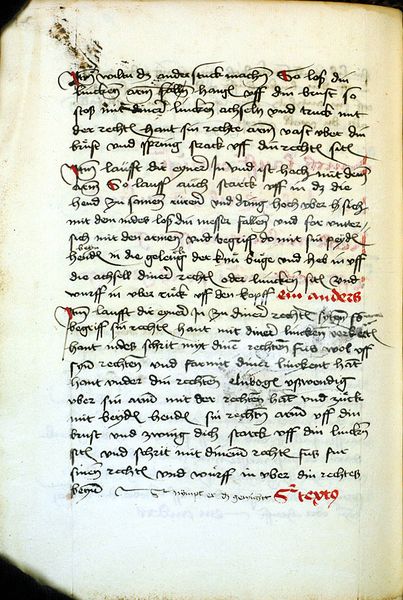 Jtem wiltu dz ander stuck machen So laß din
lincken arm fallen hangl vff din brust so
stoß mit diner lincken achseln vnd truck mit
der rechtl hant sin rechte arm vast vber din
brust vnd spring starck vff din rechtl sitl
Jtem laufft dir eyner In vnd ist hoch mit dem
arm So lauff auch starck vff in dz die
hend zu samen rüren vnd dring hoch vber sich
mit den indes loß din messer fallen vnd far vnter
sich mit den armen vnd begrif do mit sin beydl
beyn
hendl in die geleng der knü büge vnd heb in vff
die achsell diner rechtl oder lincken sitl vnd
wurff in vber rück vff den kopff ein anders
Jtem laufft dir eyner In zu diner rechtl sytten so
begriff sin recht hant mit diner lincken verkert
hant indes schrit mit dinem rechten fuß wol vff
syn rechten vnd far mit diner linckent hant
hant vnder din rechten elnbogl vswendig
vber sin arm mit der rechen hant vnd zück
mit beydl hendl sin rechten arm vff din
brust vnd zwing dich starck vff din linckn
sitl vnd schrit mit dinem rechtl fuß fur
sinen rechtl vnd wurff in vber din rechtes
beyn nympt er dz gewicht textus